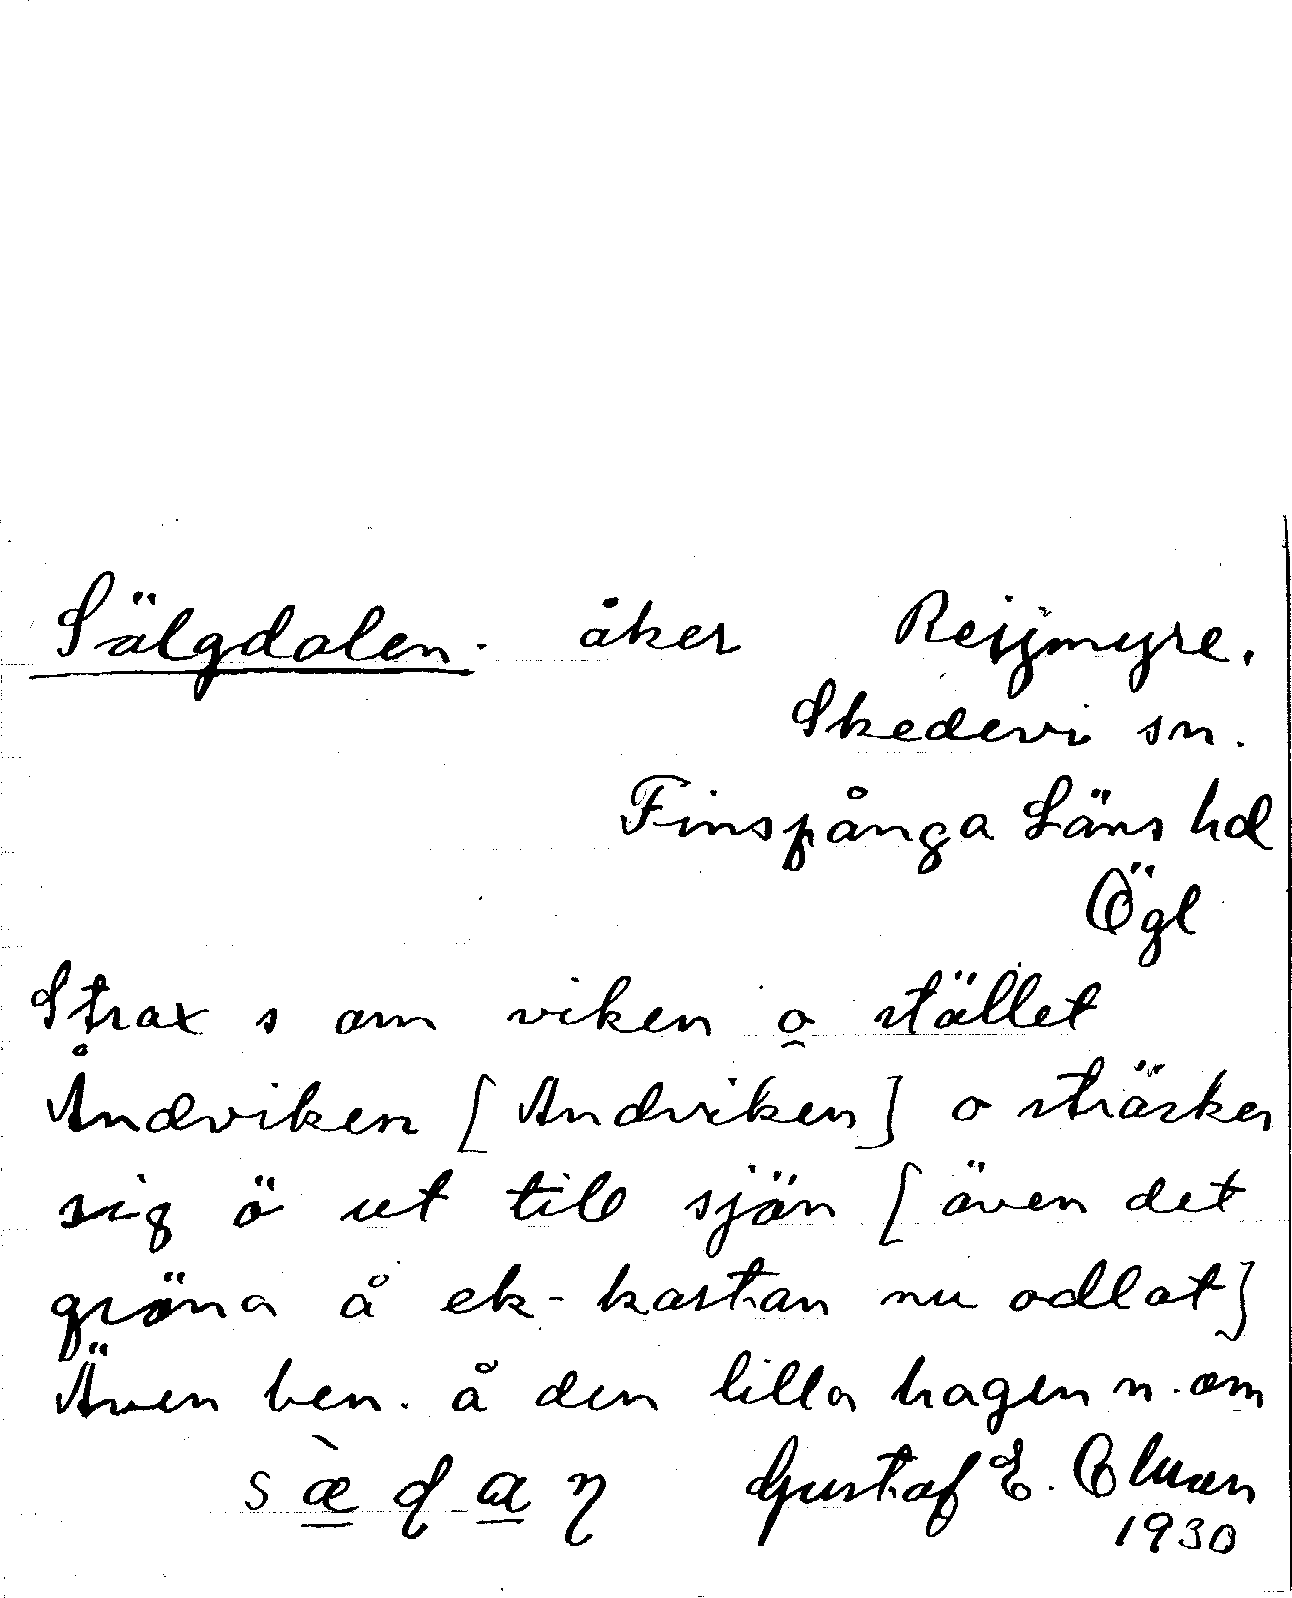 Sälgdalen. åker Rejjmyre.
Skedevi sn.
Finspånga Läns hd
Ögl
Strax s om viken o stället
Åndviken [Andviken] o sträcker
sig ö ut till sjön [även det
gröna å ek-kastan nu odlat]
Även ben. å den lilla hagen n. om
Gustaf E.
1930